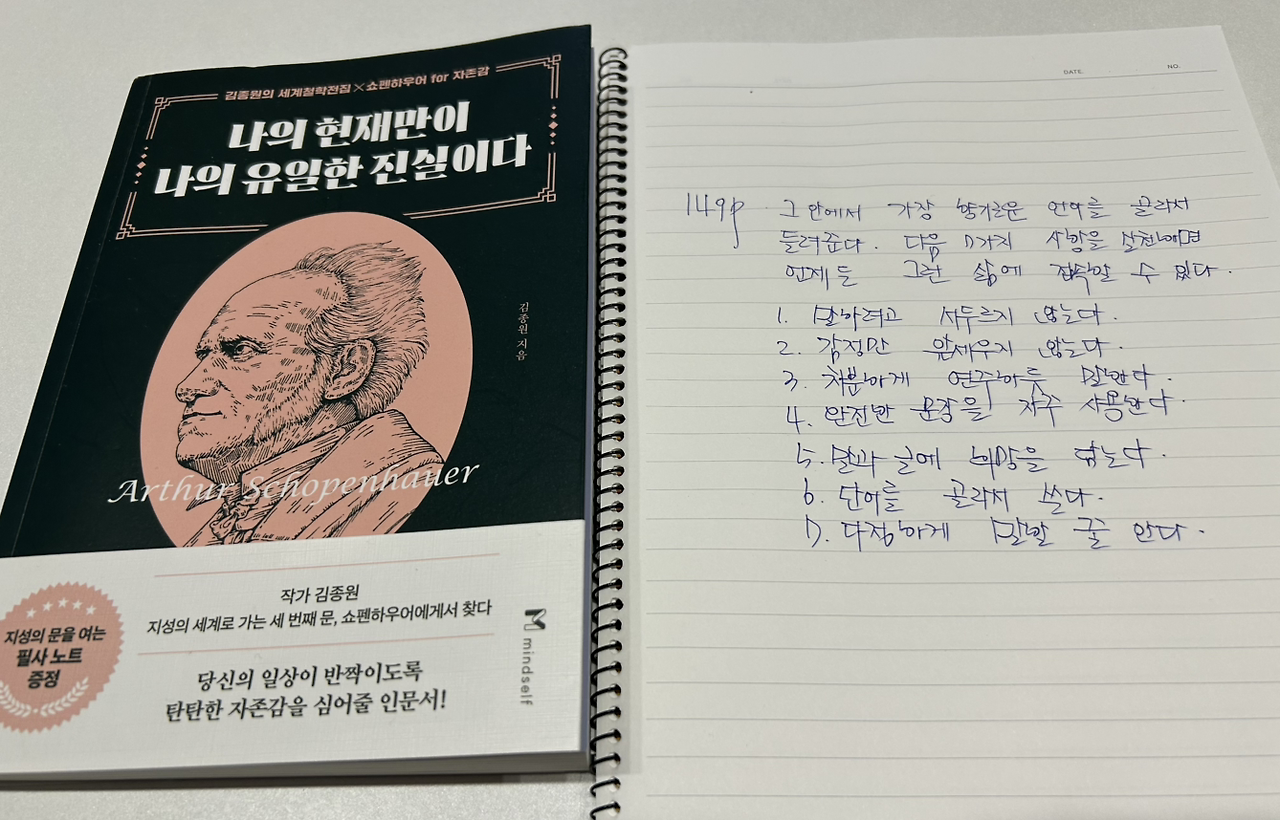 김종원의 세계철학전집×쇼펜하우어 for 자존감
나의 현재만이
나의 유일한 진실이다
김종원 지음
Arthur Schopenhauer
작가 김종원
지성의 세계로 가는 세 번째 문, 쇼펜하우어에게서 찾다
당신의 일상이 반짝이도록
탄탄한 자존감을 심어줄 인문서!
지성의 문을 여는
필사 노트
증정
mindself
DATE.
NO.
149p
그 안에서 가장 향기로운 언어를 골라서
들려준다. 다음 7가지 사항을 실천하면
언제든 그런 삶에 접속할 수 있다.
1. 말하려고 서두르지 않는다.
2. 감정만 앞세우지 않는다.
3. 차분하게 연주하듯 말한다.
4. 완전한 문장을 자주 사용한다.
5. 말과 글에 희망을 담는다.
6. 단어를 골라서 쓴다.
7. 다정하게 말할 줄 안다.